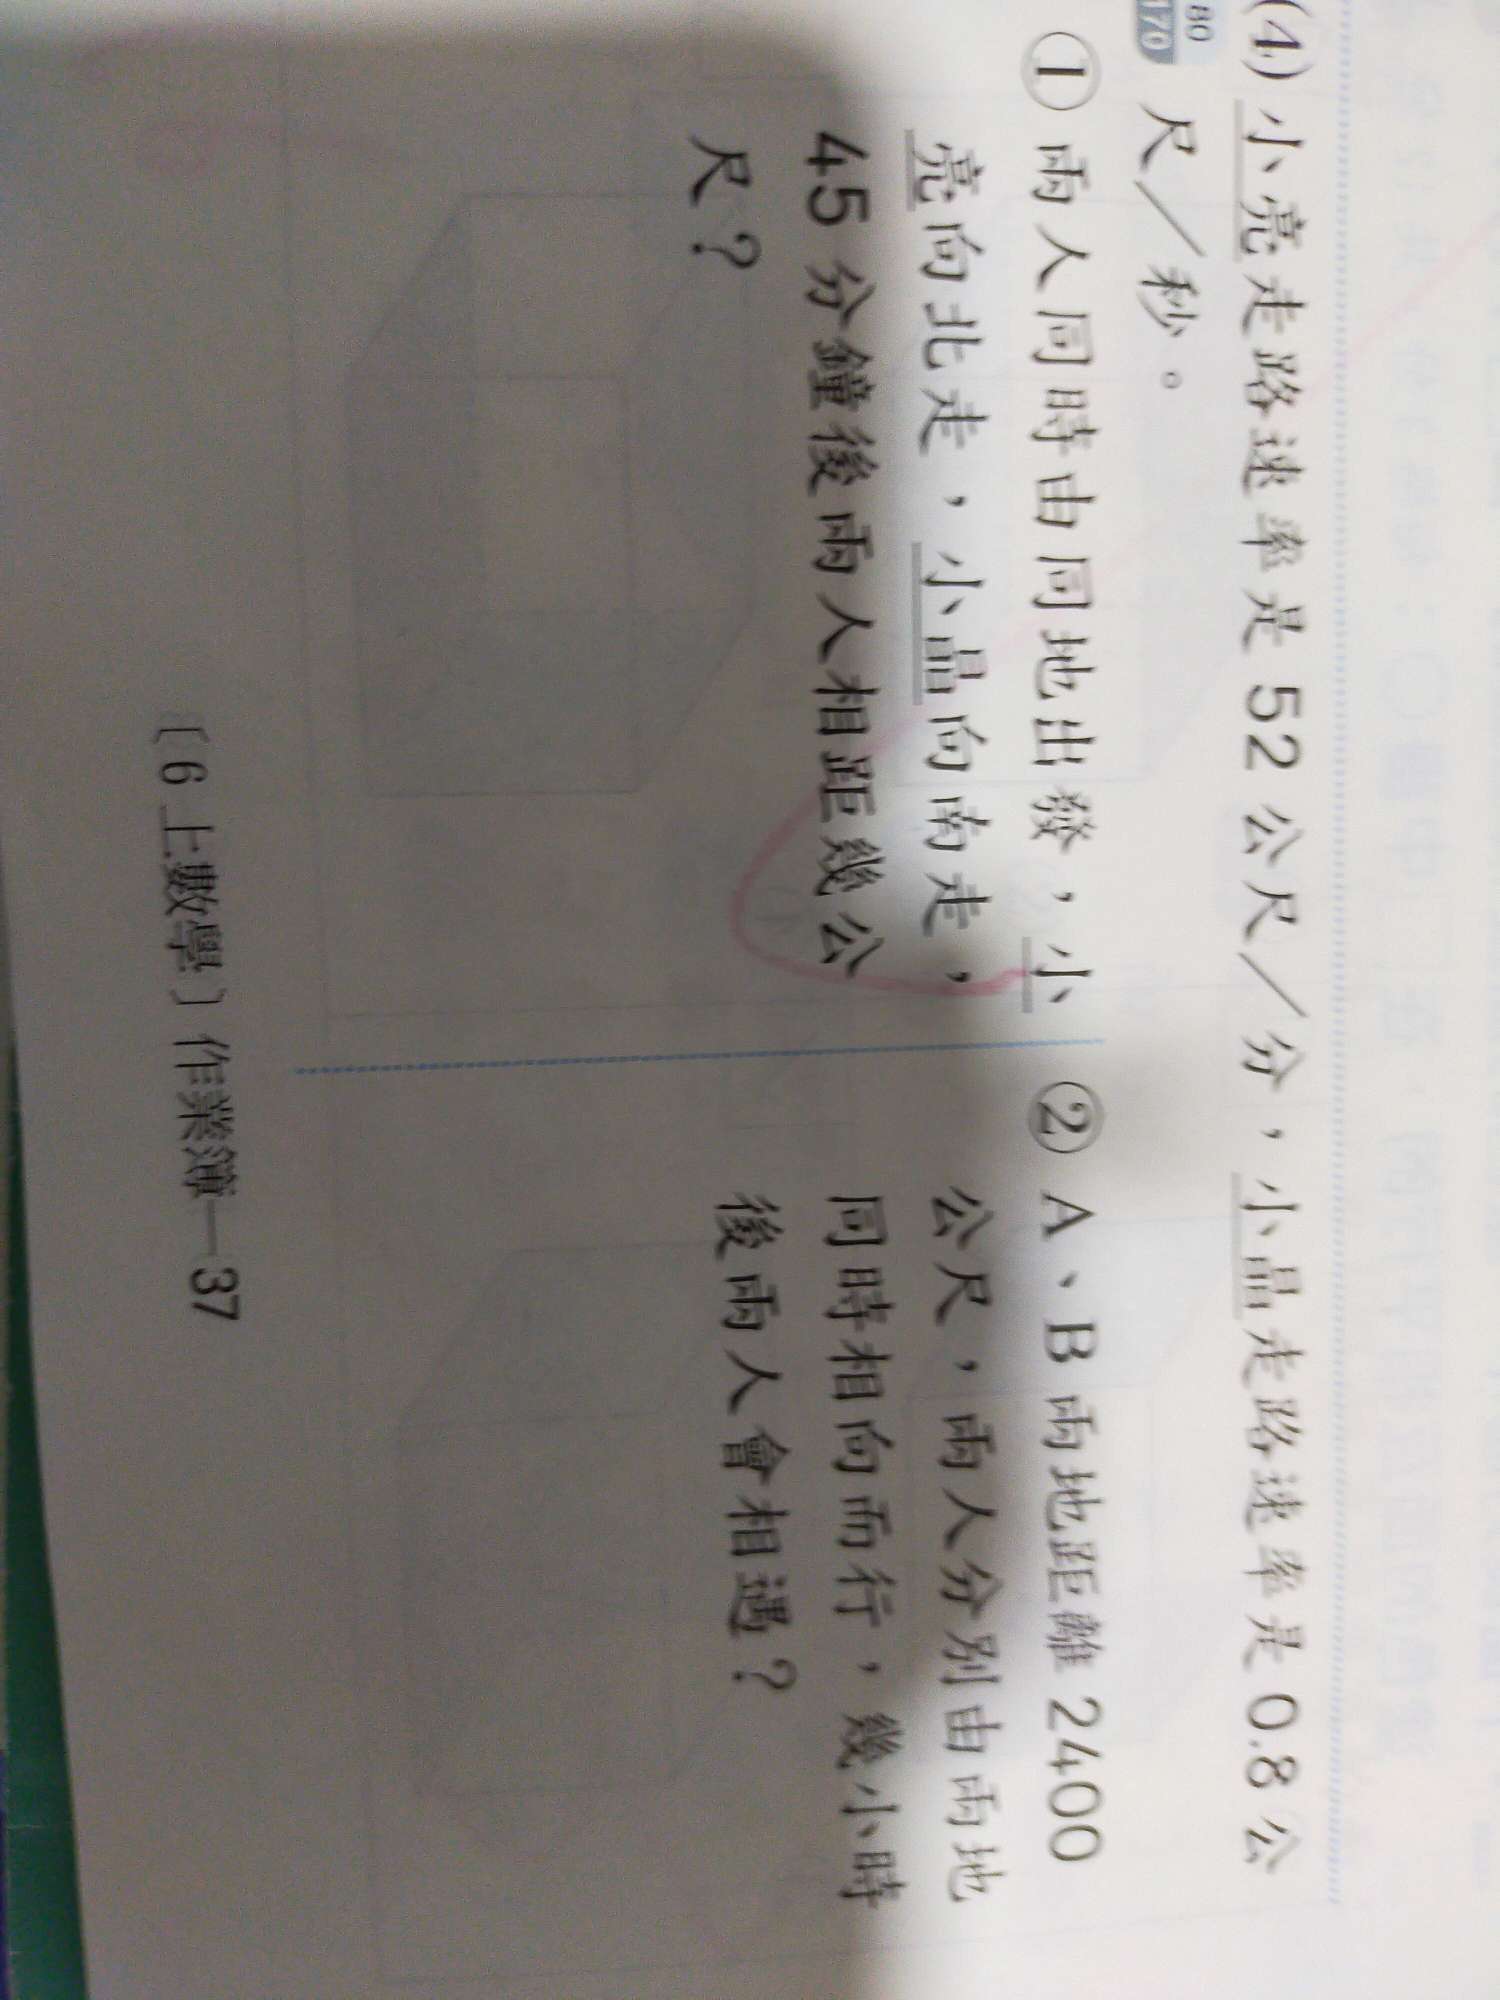 80
170
(4) 小亮走路速率是 52 公尺／分，小晶走路速率是 0.8 公
尺／秒。
① 兩人同時由同地出發，小
亮向北走，小晶向南走，
45 分鐘後兩人相距幾公
尺？
② A、B 兩地距離 2400
公尺，兩人分別由兩地
同時相向而行，幾小時
後兩人會相遇？
〔6上數學〕作業簿－37